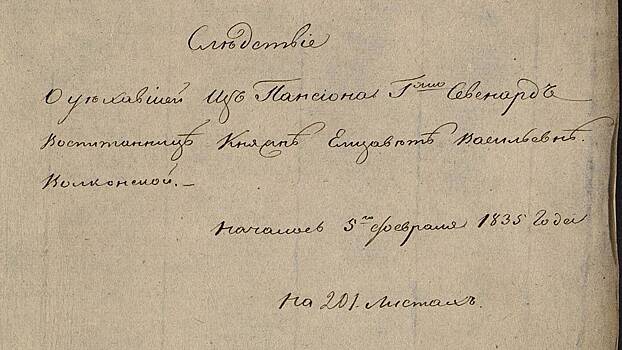 Слѣдствіе
О уѣхавшей Изъ Пансіона Г-жи Севенардъ
Воспитанницѣ Княжнѣ Елизаветѣ Васильевнѣ
Волконской.—
Началось 5го февраля 1835 Года
На 201 Листахъ.